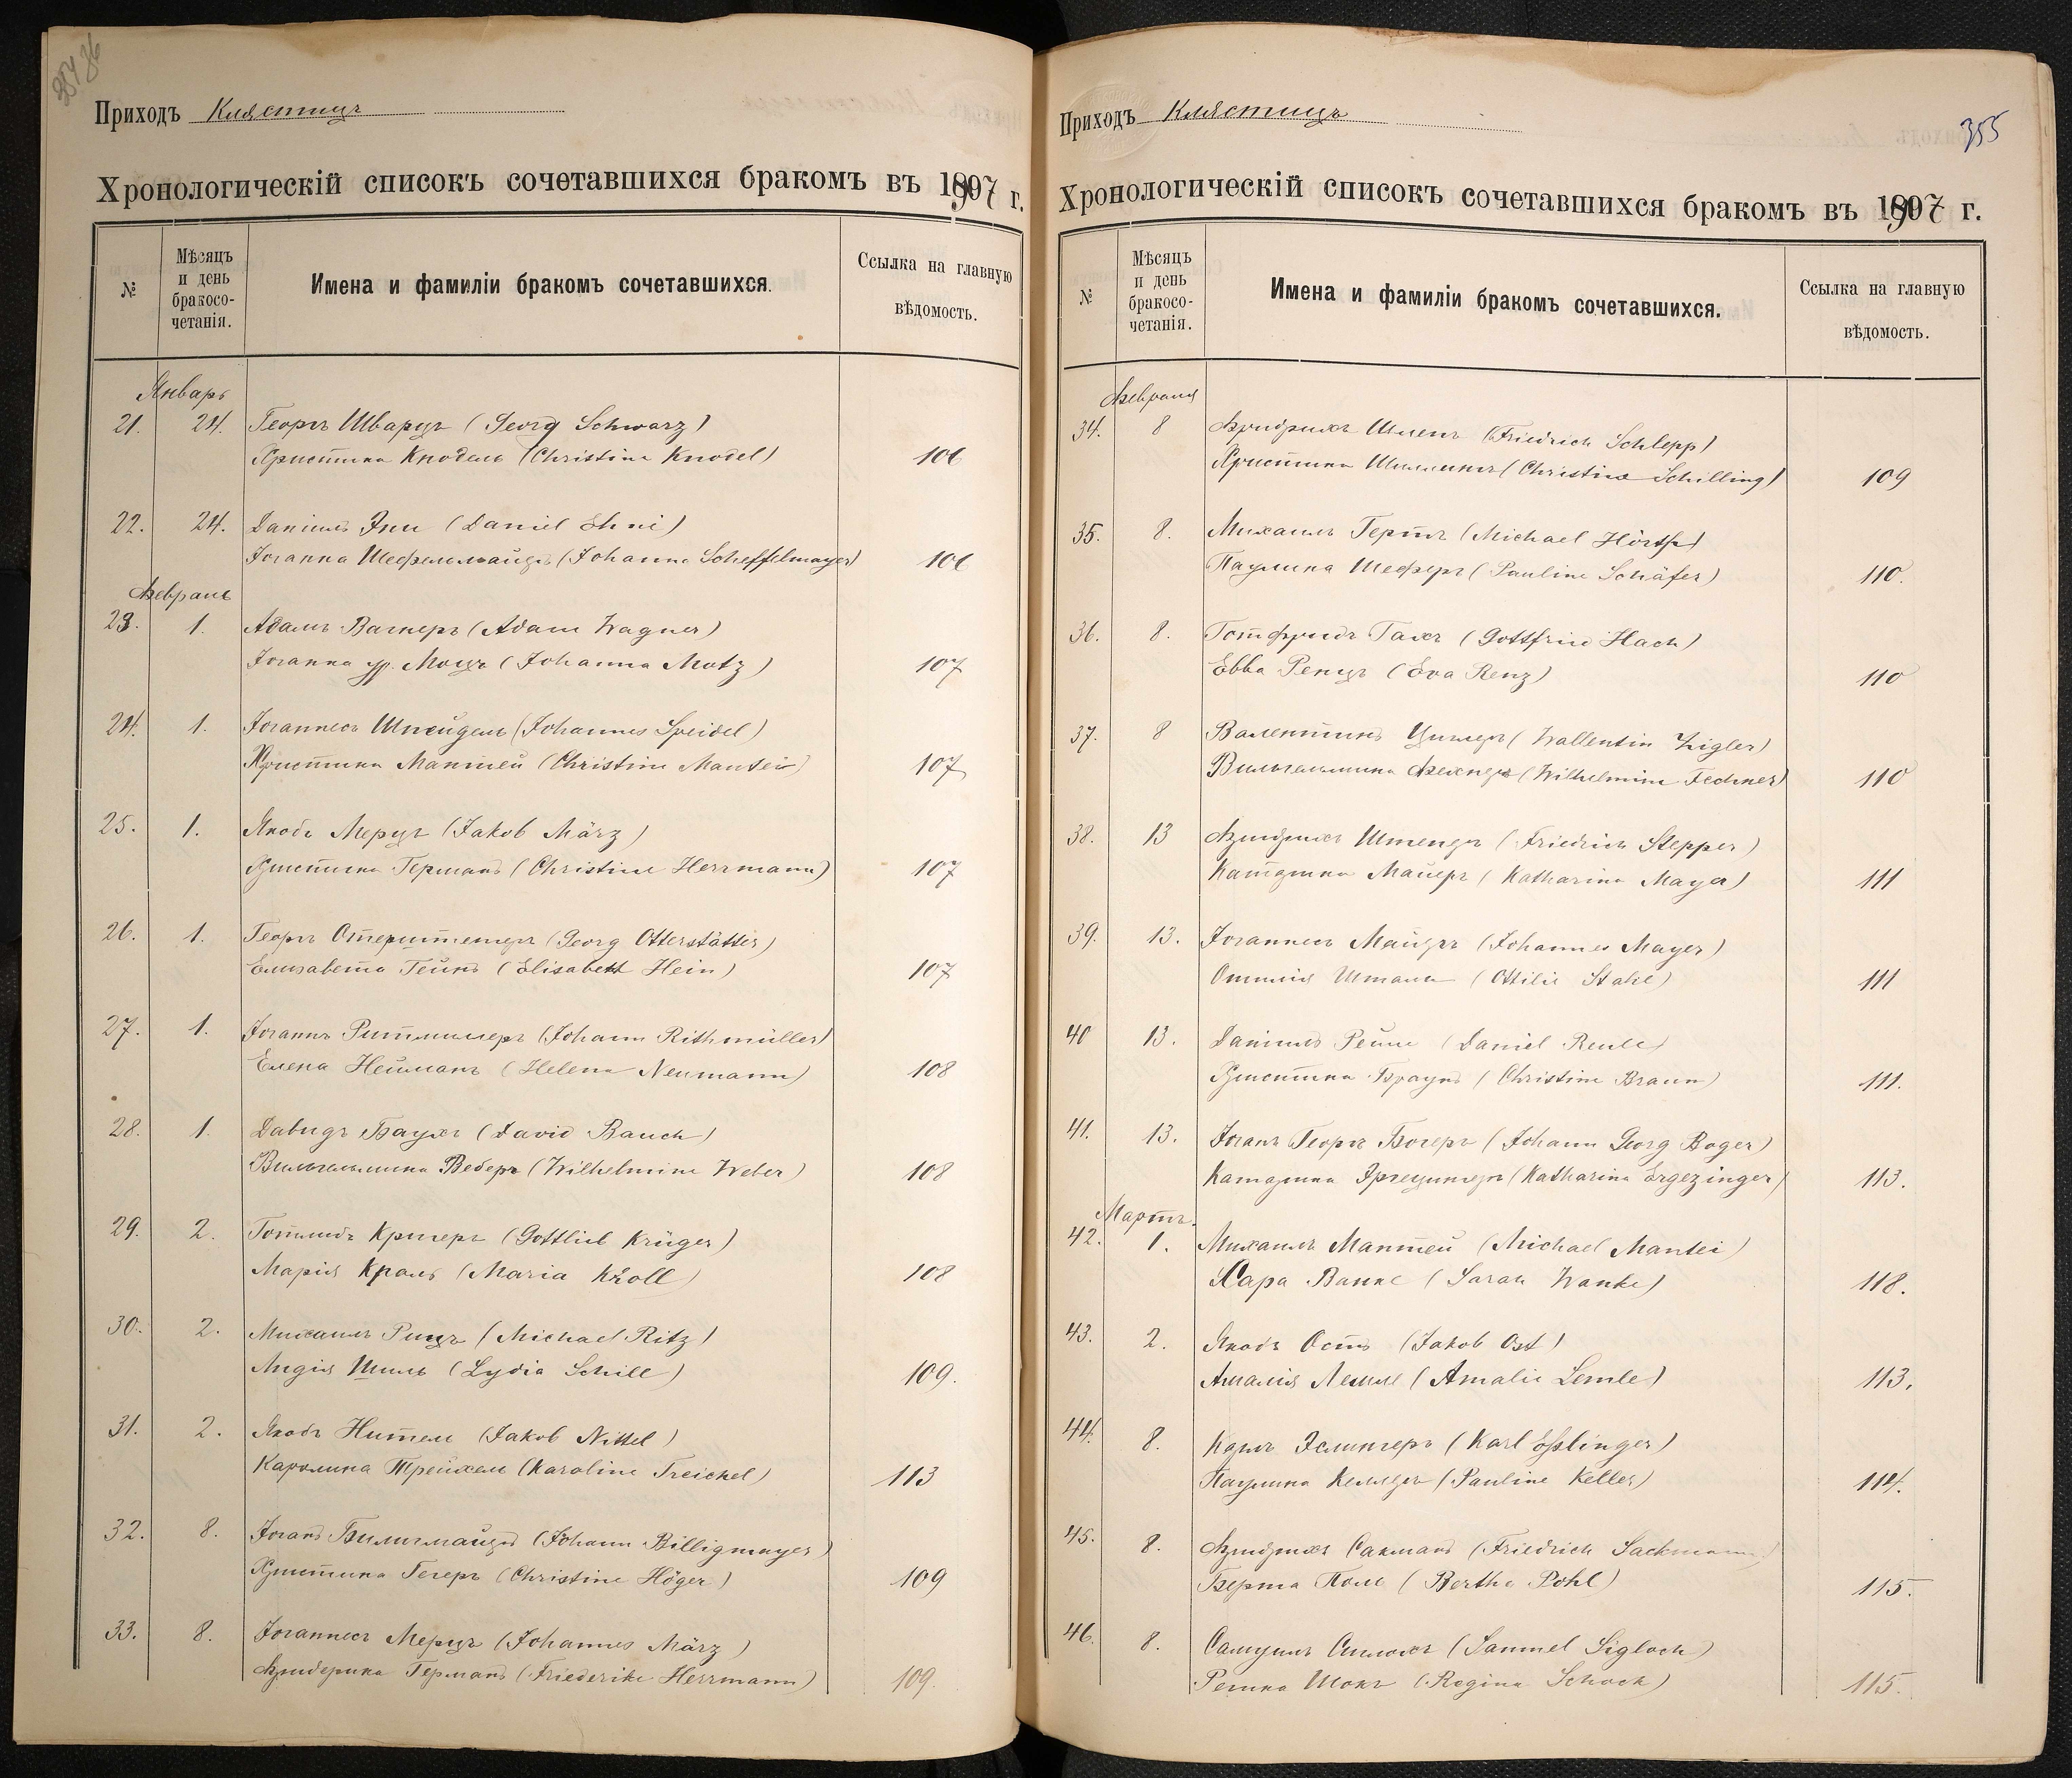 Приходъ Клястицъ
Хронологическій списокъ сочетавшихся бракомъ въ 1907 г.
№
Мѣсяцъ и день бракосо-четанія.
Имена и фамиліи бракомъ сочетавшихся.
Ссылка на главную вѣдомость.
Январь
21. 24. Георгъ Шварцъ (Georg Schwarz)
Христина Кнодель (Christine Knodel) 106
22. 24. Даніилъ Эни (Daniel Ehni)
Іоганна Шефельмайеръ (Johanna Scheffelmayer) 106
Февраль
23. 1. Адамъ Вагнеръ (Adam Wagner)
Іоганна ур. Моцъ (Johanna Motz) 107
24. 1. Іоганнесъ Шпейдель (Johannes Speidel)
Христина Мантей (Christine Mantei) 107
25. 1. Якобъ Мерцъ (Jakob März)
Христина Германъ (Christine Herrmann) 107
26. 1. Георгъ Отерштетеръ (Georg Otterstätter)
Елизавета Гейнъ (Elisabeth Hein) 107
27. 1. Іоганнъ Ритмиллеръ (Johann Rithmüller)
Елена Нейманъ (Helena Neumann) 108
28. 1. Давидъ Баухъ (David Bauch)
Вильгельмина Веберъ (Wilhelmine Weber) 108
29. 2. Готлибъ Кригеръ (Gottlieb Krüger)
Марія Кроль (Maria Kroll) 108
30. 2. Михаилъ Рицъ (Michael Ritz)
Лидія Шиль (Lydia Schill) 109.
31. 2. Якобъ Нитель (Jakob Nittel)
Каролина Трейхель (Karoline Treichel) 113
32. 8. Іоганъ Билигмайеръ (Johann Billigmayer)
Христина Гегеръ (Christine Höger) 109
33. 8. Іоганнесъ Мерцъ (Johannes März)
Фридерика Германъ (Friederike Herrmann) 109.
Приходъ Клястицъ
355
Хронологическій списокъ сочетавшихся бракомъ въ 1907 г.
№
Мѣсяцъ и день бракосо-четанія.
Имена и фамиліи бракомъ сочетавшихся.
Ссылка на главную вѣдомость.
Февраля
34. 8 Фридрихъ Шлепъ (Friedrich Schlepp)
Христина Шиллингъ (Christine Schilling) 109
35. 8. Михаилъ Гертъ (Michael)
Паулина Шеферъ (Pauline Schäfer) 110.
36. 8. Готфридъ Гахъ (Gottfried Hach)
Евва Ренцъ (Eva Renz) 110
37. 8 Валентинъ Циглеръ (Wallentin Zigler)
Вильгельмина Фехнеръ (Wilhelmine Fechner) 110
38. 13 Фридрихъ Штеперъ (Friedrich Stepper)
Катарина Майеръ (Katharina Mayer) 111
39. 13. Іоганнесъ Майеръ (Johannes Mayer)
Оттилія Шталь (Ottilie Stahl) 111
40 13. Даніилъ Рейле (Daniel Reule)
Христина Браунъ (Christine Braun) 111.
41. 13. Іоганъ Георгъ Богеръ (Johann Georg Boger)
Катарина Эргецингеръ (Katharina Ergezinger) 113.
Мартъ.
42. 1. Михаилъ Мантей (Michael Mantei)
Сара Ванке (Sarah Wanke) 118.
43. 2. Якобъ Остъ (Jakob Ost)
Амалія Лемле (Amalie Lemle) 113.
44. 8. Карлъ Эслингеръ (Karl Eßlinger)
Паулина Келлеръ (Pauline Keller) 114.
45. 8. Фридрихъ Сакманъ (Friedrich Sackmann)
Берта Поль (Bertha Pohl) 115.
46. 8. Самуилъ Сиглохъ (Samuel Sigloch)
Регина Шокъ (Regina Schock) 115.